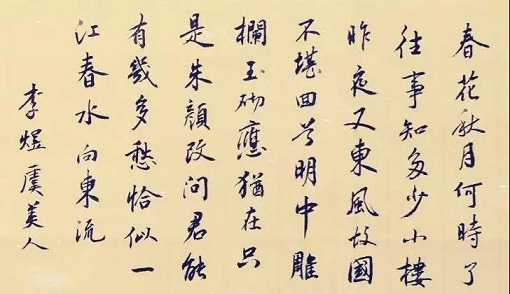 春花秋月何時了
往事知多少小樓
昨夜又東風故國
不堪回首明中雕
欄玉砌應猶在只
是朱顏改問君能
有幾多愁恰似一
江春水向東流
李煜虞美人